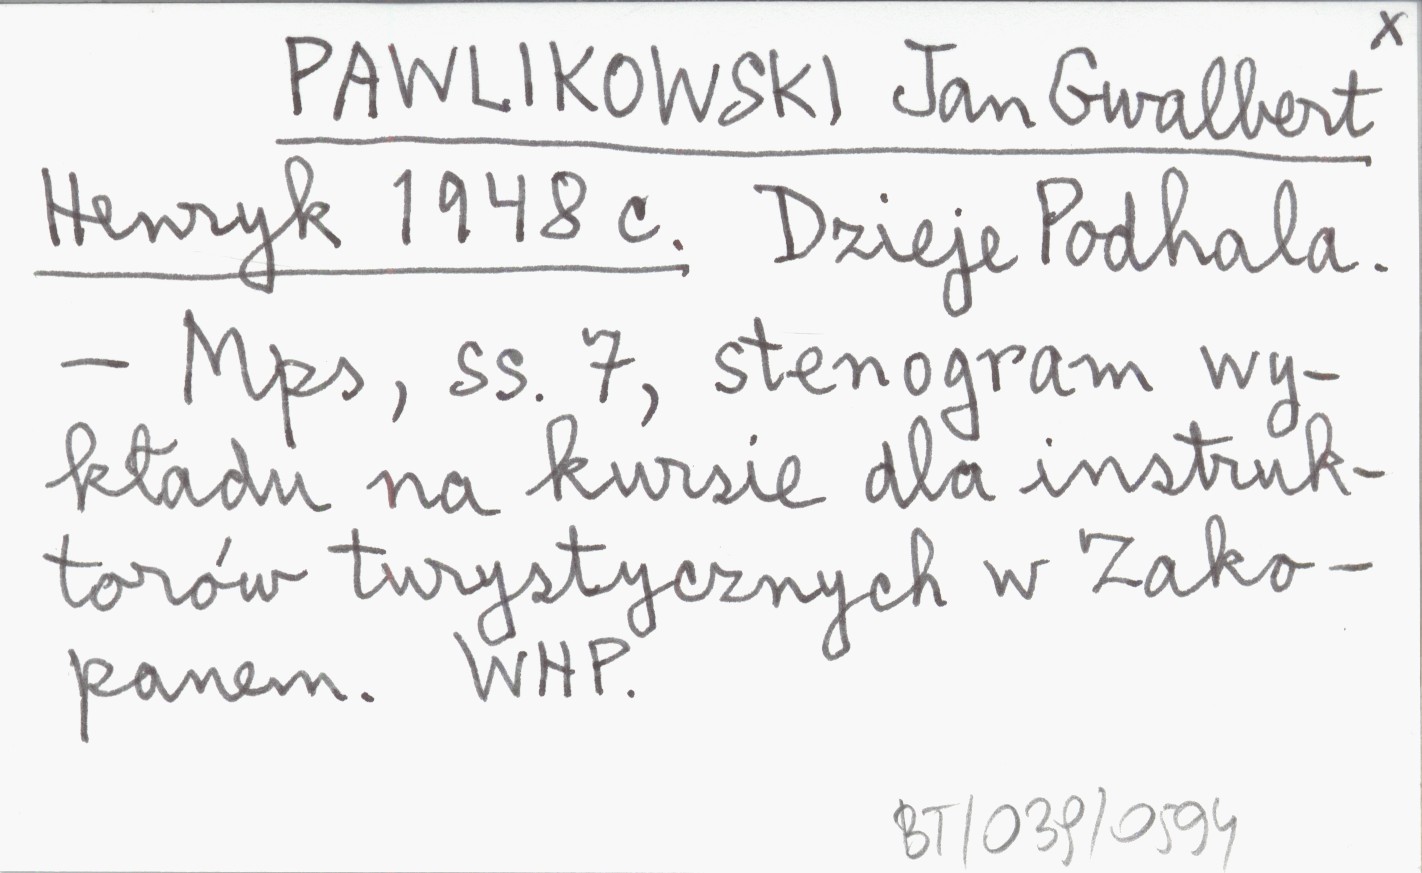 x
PAWLIKOWSKI Jan Gwalbert
Henryk 1948 c. Dzieje Podhala.
– Mps, ss. 7, stenogram wy-
kładu na kursie dla instruk-
torów turystycznych w Zako-
panem. WHP.
BT/039/0594